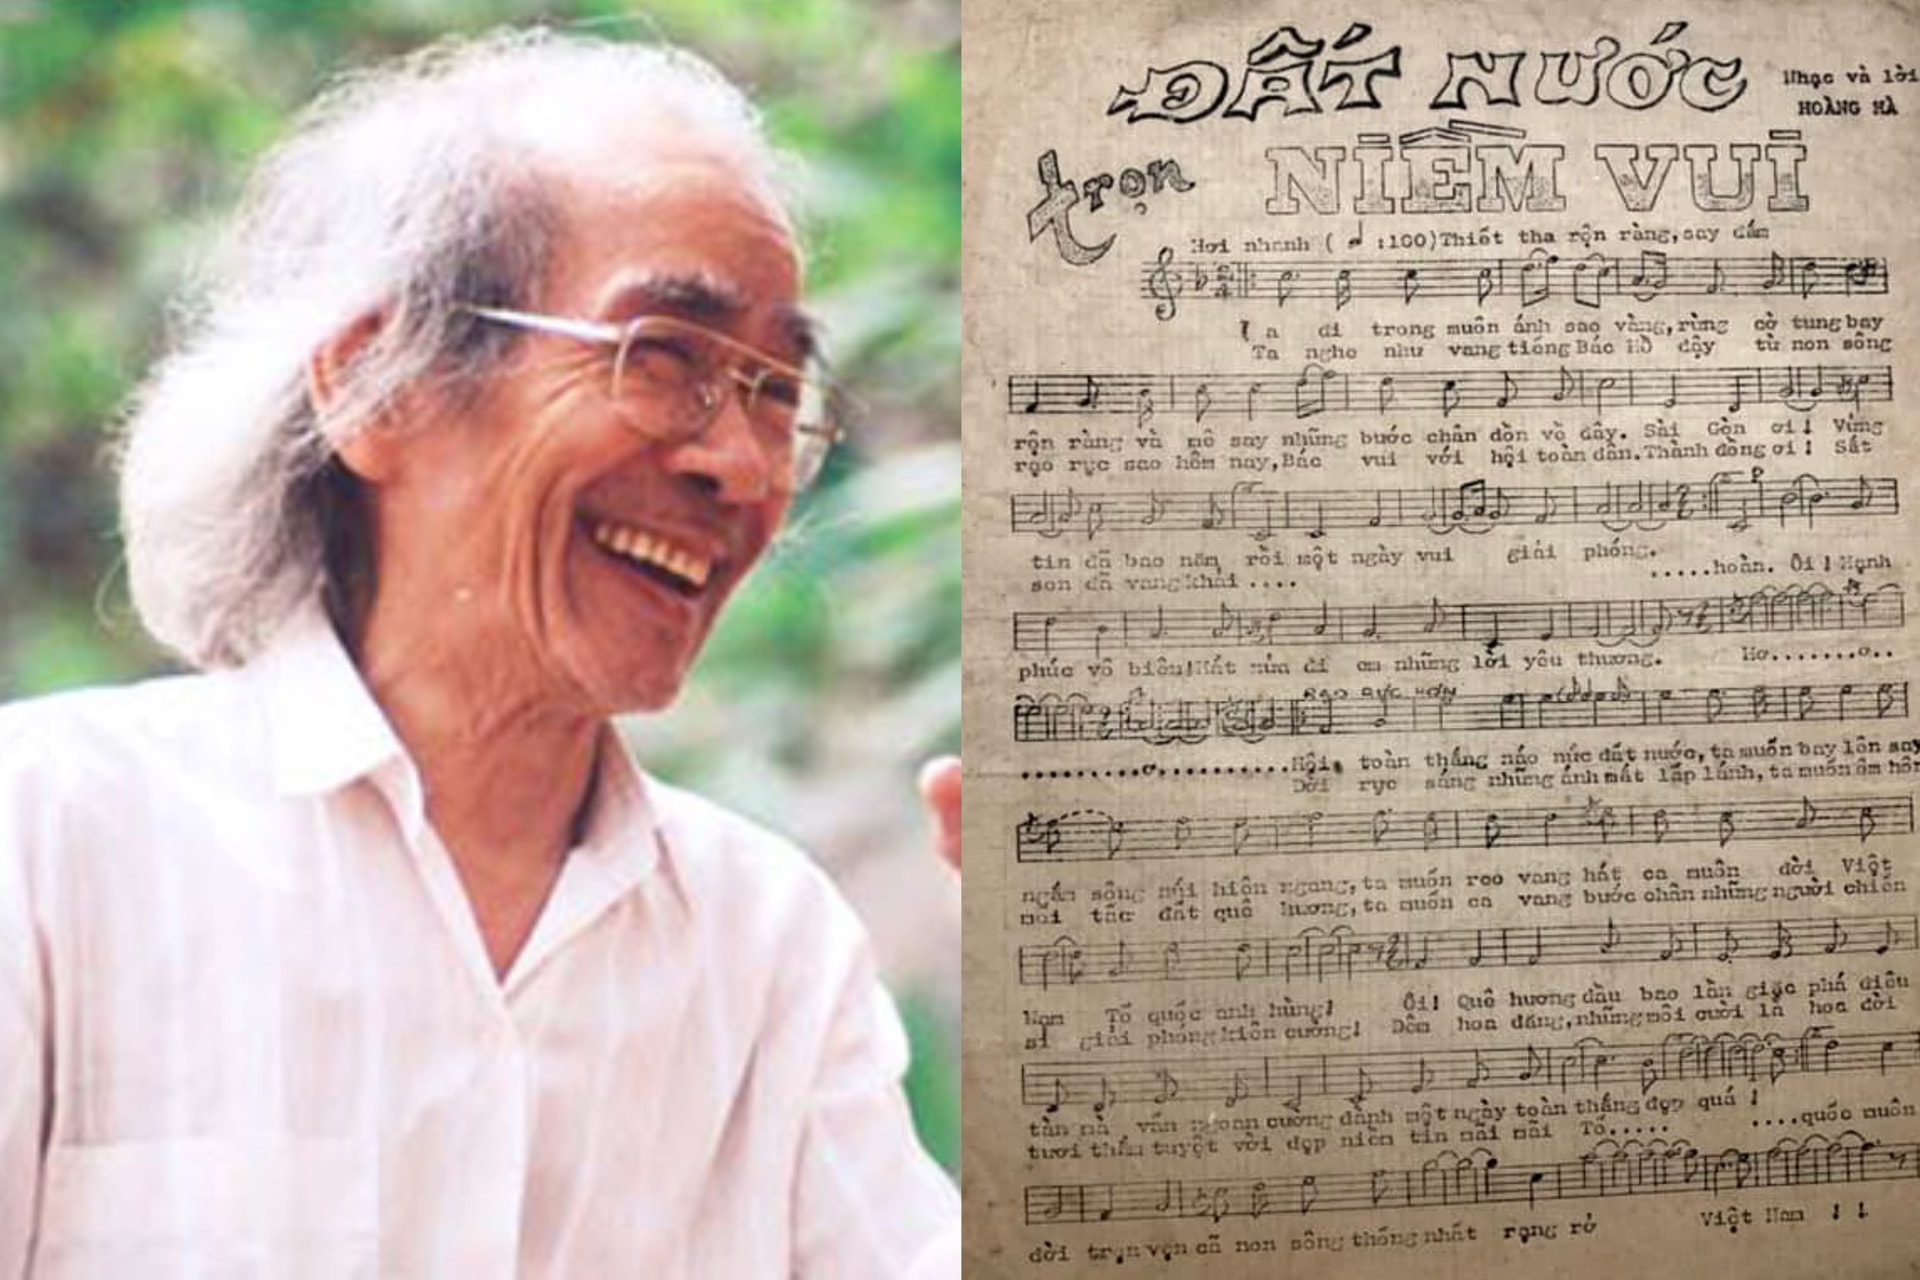 ĐẤT NƯỚC
Nhạc và lời
HOÀNG HÀ
trọn NIỀM VUI
Hơi nhanh ( :100)Thiết tha rộn ràng,say đắm
Ta đi trong muôn ánh sao vàng,rừng cờ tung bay
Ta nghe như vang tiếng Bác Hồ dậy từ non sông
rộn ràng và mê say những bước chân dồn về đây. Sài Gòn ơi! Vững
rạo rực sao hôm nay,Bác vui với hội toàn dân.Thành đồng ơi! Sắt
tin đã bao năm rồi một ngày vui giải phóng.
son đã vang khải ....
.....hoàn. Ôi! Hạnh
phúc vô biên!Hát nữa đi em những lời yêu thương. Hơ.......ơ..
RẠO RỰC HƠN
.........ơ..........Hội toàn thắng náo nức đất nước,ta muốn bay lên say
Đời rực sáng những ánh mắt lấp lánh,ta muốn ôm hôn
ngắm sông núi hiên ngang,ta muốn reo vang hát ca muôn đời Việt
mỗi tấc đất quê hương,ta muốn ca vang bước chân những người chiến
Nam Tổ quốc anh hùng! Ôi! Quê hương dẫu bao lần giặc phá điêu
sĩ giải phóng kiên cường! Đêm hoa đăng,những môi cười là hoa đời
tàn mà vẫn ngoan cường dành một ngày toàn thắng đẹp quá !
tươi thắm tuyệt vời đẹp niềm tin mãi mãi Tổ..... ....quốc muôn
đời trọn vẹn cả non sông thống nhất rạng rỡ Việt Nam ! !